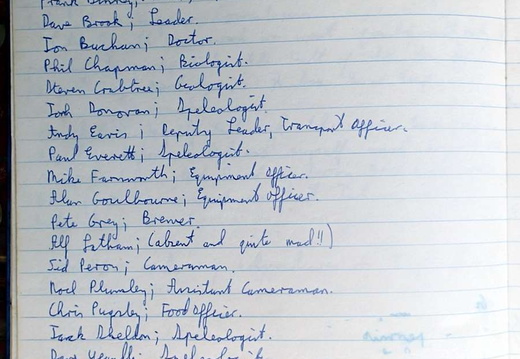 Frank
Dave Brook; Leader.
Jon Buchan; Doctor.
Phil Chapman; Biologist.
Steven Crabtree; Geologist.
Donovan; Speleologist.
Andy Eavis; Deputy Leader, Transport Officer.
Paul Everett; Speleologist.
Mike Farnworth; Equipment Officer.
Alan Goulbourne; Equipment Officer.
Pete Grey; Brewer.
Alf Latham; (absent and quite mad!!)
Sid Perou; Cameraman.
Noel Plumley; Assistant Cameraman.
Chris Pugsley; Food Officer.
Jack Sheldon; Speleologist.
Dave